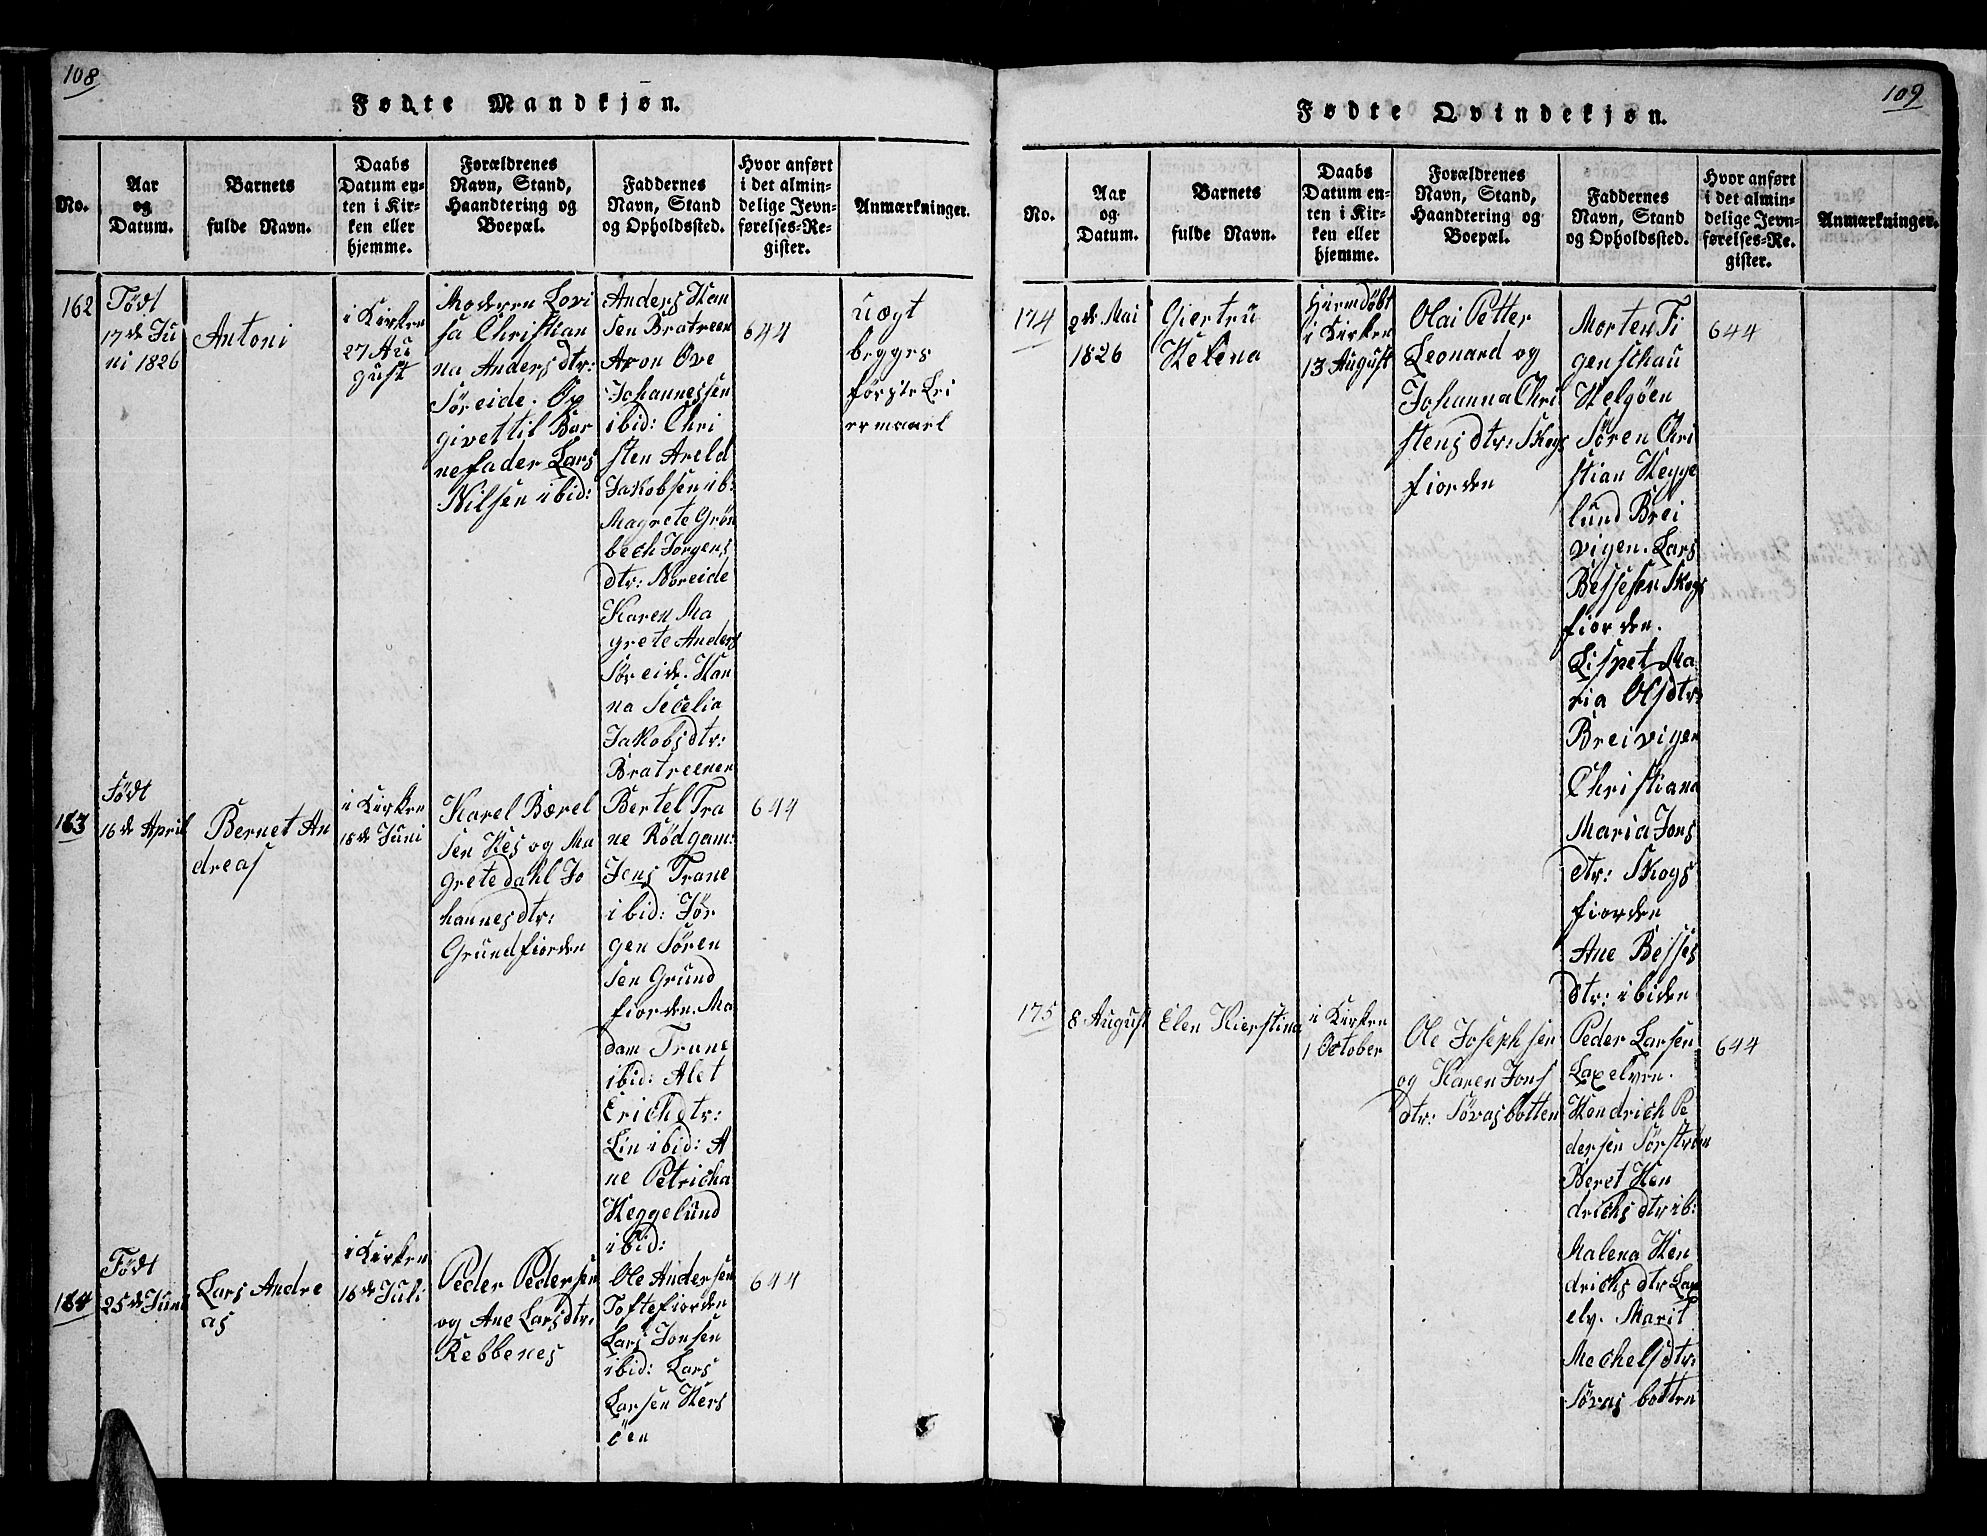 108
Fødte Mandkjøn.
No.
Aar
og
Datum.
Barnets
fulde Navn.
Daabs
Datum en-
ten i Kir-
ken eller
hjemme.
Forældrenes
Navn, Stand,
Haandtering og
Boepæl.
Faddernes
Navn, Stand
og Opholdssted.
Hvor anført
i det almin-
delige Jevn-
førelses-Re-
gister.
Anmærkninger.
162
Födt
17de Ju
ni 1826
Antoni
i Kirken
27 Au
gust
Moderen Lovi
sa Christian
na Andersdtr:
Søreide. Op
givet til Bar
nefader Lars
Nilsen ibid:
Anders Han
sen Bratreen
Aron Ove
Johannessen
ibid: Chri
sten Areld
Jakobsen ib:
Magrete Grøn
bech Jørgens
dtr: Noreide
Karen Ma
grete Anders
Søreide. Han
na Secelia
Jakobsdtr:
Bratreenen
644
uægt
begges
første Lei
ermaael
163
Födt
16de April
Bernet An
dreas
i Kirken
18de Juni
Karel Bærel
sen Nes og Ma
grete dahl Jo
hannesdtr:
Grundfiorden
Bertel Tra
ne Rödgam:
Jens Trane
ibid: Jør
gen Sören
sen Grund
fiorden. Ma
dam Trane
ibid: Alet
Erichdtr:
Lin ibid: A
ne Petricha
Heggelund
ibid:
644
164
Födt
25de Juni
Lars Andre
as
i Kirken
16de Juli
Peder Pedersen
og Ane Larsdtr:
Rebbenes
Ole Andersen
Toftefiorden
Lars Jonsen
ibid: Lars
Larsen Hers
öen
644
109
Fødte Qvindekjøn.
No.
Aar
og
Datum.
Barnets
fulde Navn.
Daabs
Datum en-
ten i Kir-
ken eller
hjemme.
Forældrenes
Navn, Stand,
Haandtering og
Boepæl.
Faddernes
Navn, Stand
og Opholdssted.
Hvor anført
i det almin-
delige Jevn-
førelses-Re-
gister.
Anmærkninger.
174
2de Mai
1826
Giertru
Helena
Hiemdøbt
i Kirken
13 August
Olai Petter
Leonard og
Johanna Chri
stensdtr: Skogs
fiorden
Morten Fi
genschau
Helgöen
Sören Chri
stian Hegge
lund Brei
vigen. Lars
Bessesen Skogs
fiorden.
Lispet Ma
ria Olsdtr:
Breivigen
Christiana
Maria Jons
dtr: Skogs
fiorden
Ane Besses
dtr: ibiden
644
175
8 August
Elen Kierstina
i Kirken
1 October
Ole Josephsen
og Karen Jons
dtr: Sövasbotten
Peder Larsen
Laxelven.
Hendrich Pe
dersen Sörström
Beret Hen
drichsdtr ib:
Malena Hen
drichsdtr Lax
elv. Marit
Mechelsdtr:
Sövasbotten
644